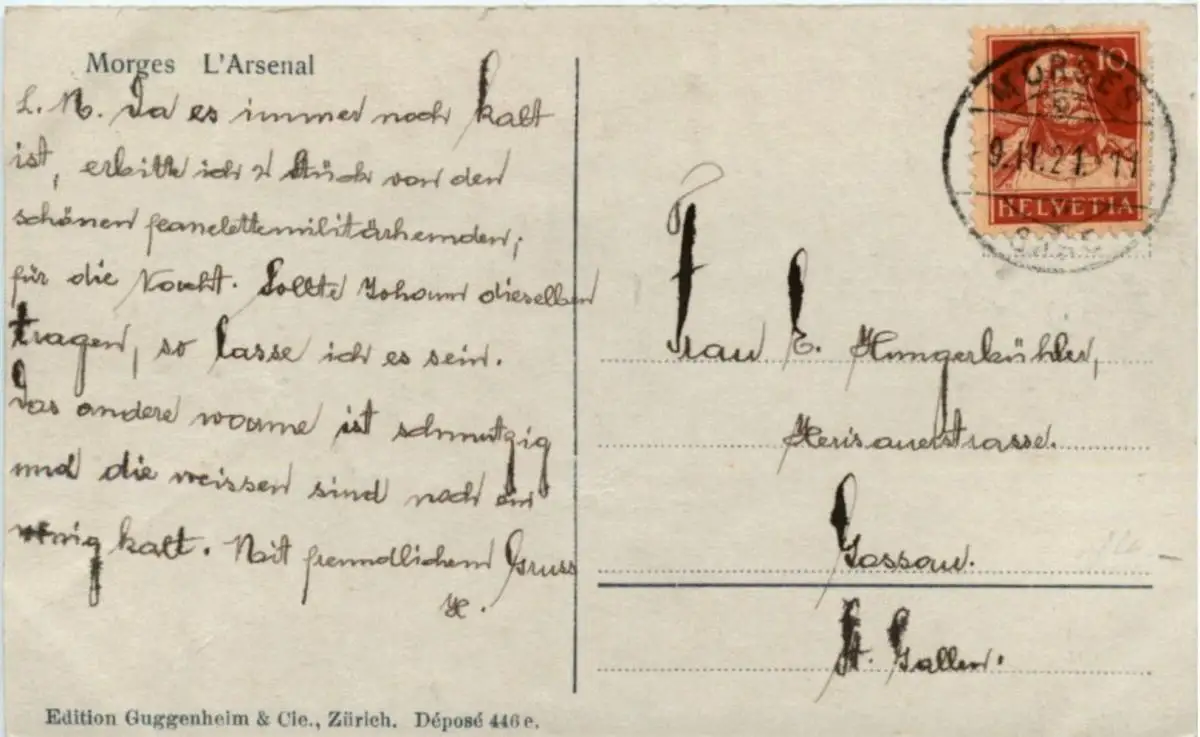 Morges L'Arsenal
L. M. Da es immer noch kalt
ist, erbitte ich 2 Stück von den
schönen feanelettemilitärhemden,
für die Nacht. Sollte Johann dieselben
tragen, so lasse ich es sein.
Das andere warme ist schmutzig
und die weissen sind noch ein
wenig kalt. Mit freundlichem Gruss
H.
Edition Guggenheim & Cie., Zürich. Déposé 446 e.
10
HELVETIA
MORGES
9.II.21. 11
Frau E. Hungerbühler,
Herisauerstrasse.
Gossau.
St. Gallen.